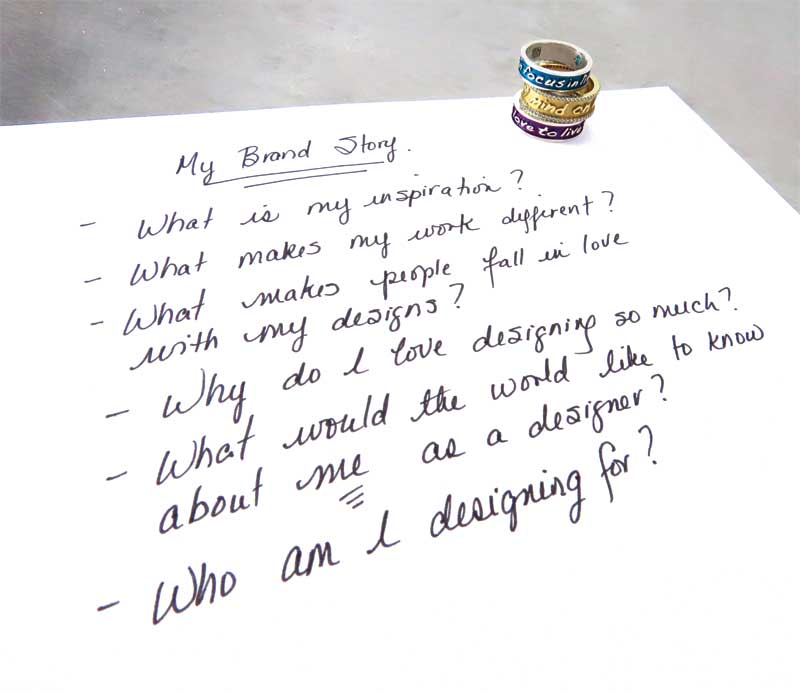 focus in
mind on
love to live
My Brand Story.
- What is my inspiration?
- What makes my work different?
- What makes people fall in love
with my designs?
- Why do I love designing so much?
- What would the world like to know
about me as a designer?
- Who am I designing for?